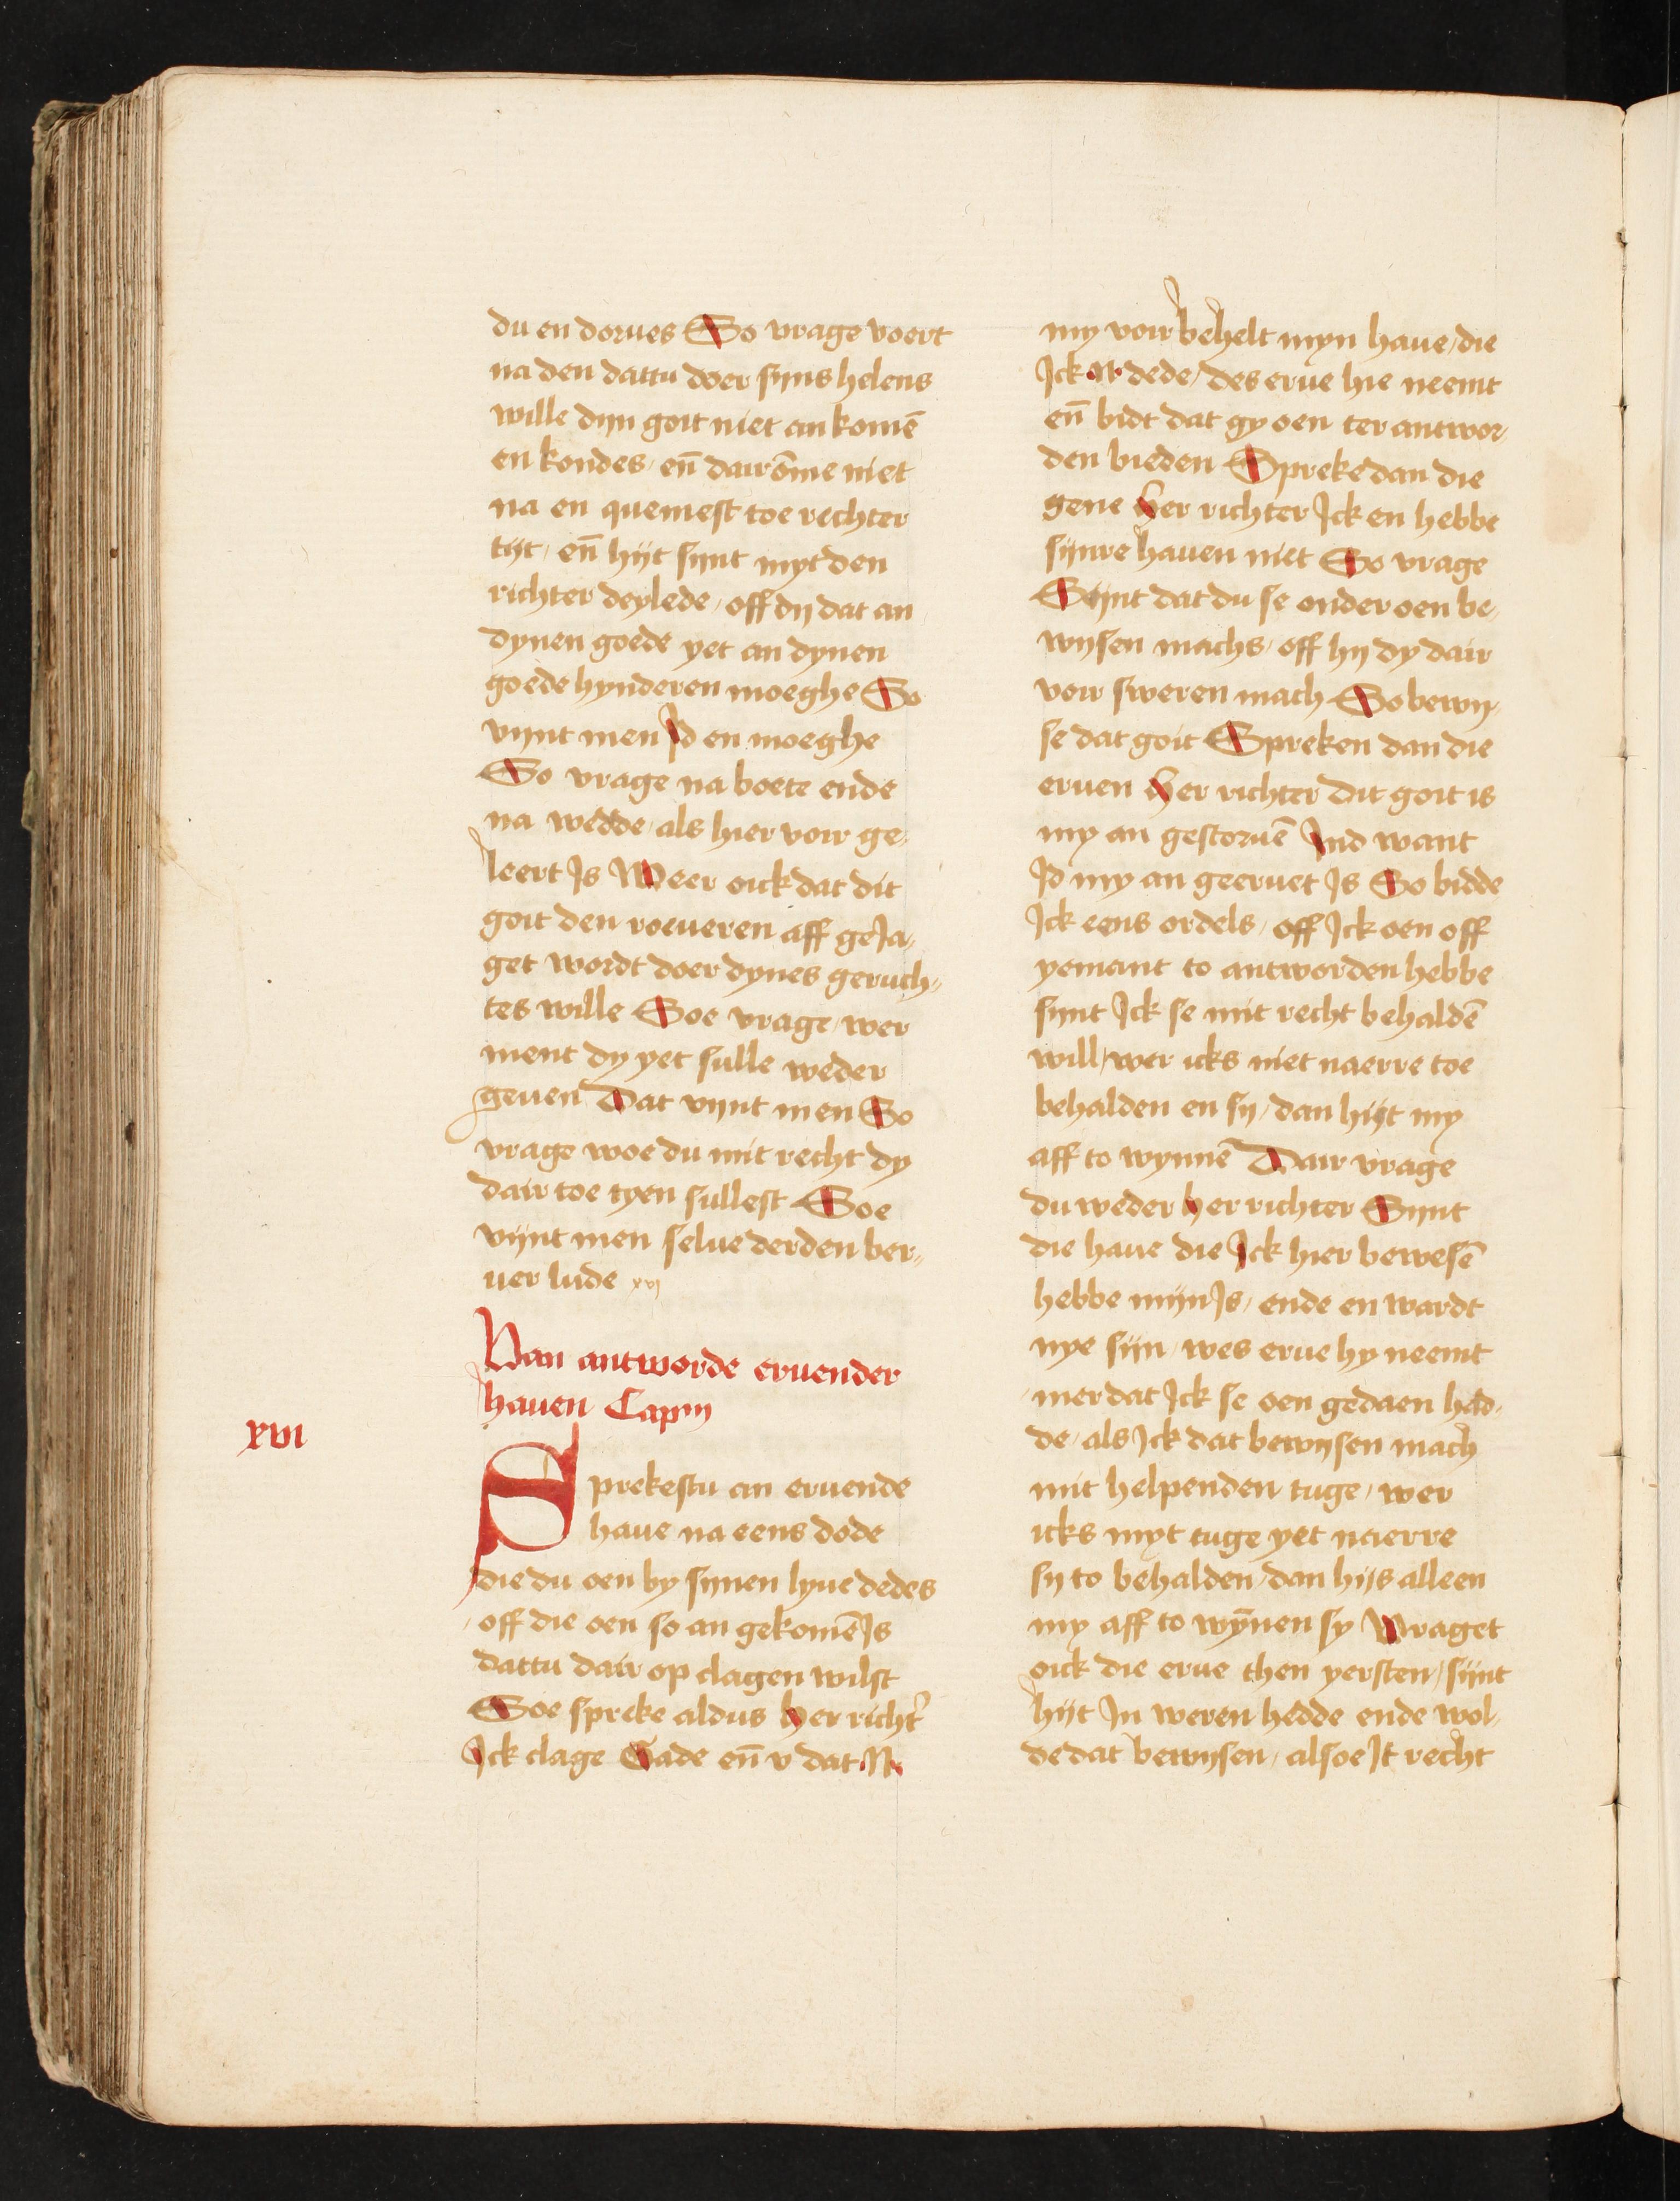 du en dorues So vrage voert
na den dattu doer syns helens
wille dyn goit niet an komē
en kondes / en̄ dairōme niet
na en quemest toe rechter
tijt / en̄ hijt synt myt den
richter deylede / off dy dat an
dynen goede yet an dynen
goede hynderen moeghe So
vynt men Jd en moeghe
So vrage na boete ende
na wedde / als hier voir ge-
leert Js Meer oick dat dit
goit den roeueren aff geJa-
get wordt doer dynes geruch-
tes wille Soe vrage / wer
ment dy yet sulle weder
geuen Dat vynt men So
vrage woe du mit recht dy
dair toe tyen sullest Soe
vijnt men selue derden ber-
uer lude xvj
Van antworde eruender
hauen Capm
xvi
Sprekestu an eruende
haue na eens dode
die du oen by synen lyue dedes
/ off die oen so an gekomē Js
dattu dair op clagen wilst
Soe spreke aldus her richt'
Jck clage Gade en̄ v dat .N.
my voir behelt myn haue / die
Jck .N. dede / des erue hie neemt
en̄ bidt dat gy oen ter antwor-
den bieden Spreke dan die
gene Her richter Jck en hebbe
sijnre hauen niet So vrage
Sijnt dat du se onder oen be-
wysen machs / off hy dy dair
voir sweren mach So bewy-
se dat goit Spreken dan die
eruen Her richter dit goit is
my an gestoruē Jnd want
Jd my an geeruet Js So bidde
Jck eens ordels / off Jck oen off
yemant to antworden hebbe
synt Jck se mit recht behaldē
will / wer icks niet naerre toe
behalden en sy / dan hijt my
aff to wynnē Dair vrage
du weder her richter Synt
die haue die Jck hier bewesē
hebbe mijn Js / ende en wardt
nye sijn / wes erue hy neemt
/ mer dat Jck se oen gedaen had-
de / als Jck dat bewysen mach
mit helpenden tuge / wer
icks myt tuge yet naerre
sy to behalden / dan hijs alleen
my aff to wȳnen sy Vraget
oick die erue then yersten / sijnt
hijt Jn weren hedde ende wol-
de dat bewysen / alsoe Jt recht